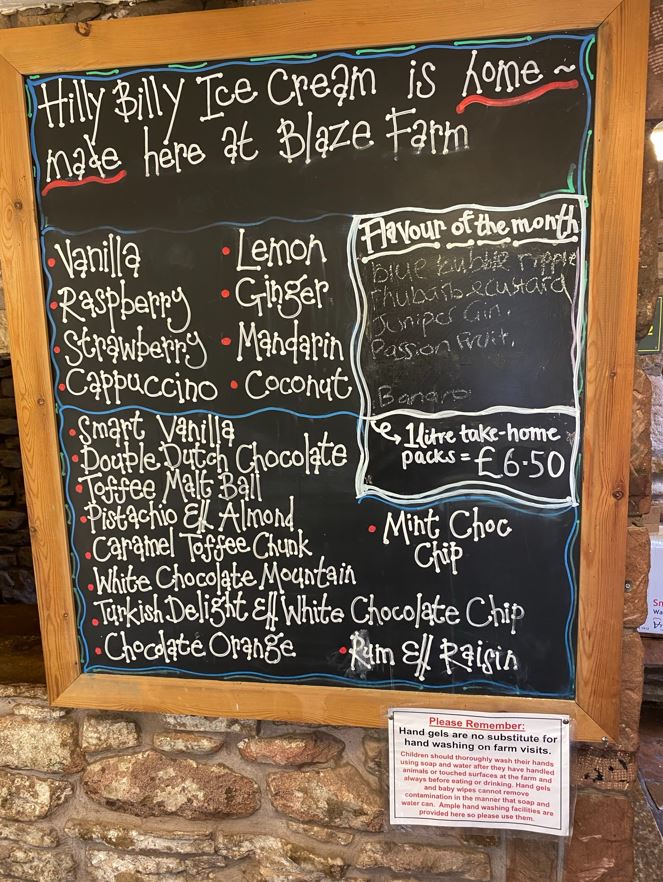 Hilly Billy Ice Cream is home~
made here at Blaze Farm
• Vanilla
• Raspberry
• Strawberry
• Cappuccino
• Lemon
• Ginger
• Mandarin
• Coconut
Flavour of the month
blue bubble ripple
rhubarb & custard
Juniper Gin.
Passion Fruit.
1litre take-home
packs = £6.50
• Smart Vanilla
• Double Dutch Chocolate
• Toffee Malt Ball
• Pistachio & Almond
• Caramel Toffee Chunk
• White Chocolate Mountain
• Turkish Delight & White Chocolate Chip
• Chocolate Orange
• Mint Choc
Chip
• Rum & Raisin
Please Remember:
Hand gels are no substitute for
hand washing on farm visits.
Children should thoroughly wash their hands
using soap and water after they have handled
animals or touched surfaces at the farm and
always before eating or drinking. Hand gels
and baby wipes cannot remove
contamination in the manner that soap and
water can. Ample hand washing facilities are
provided here so please use them.